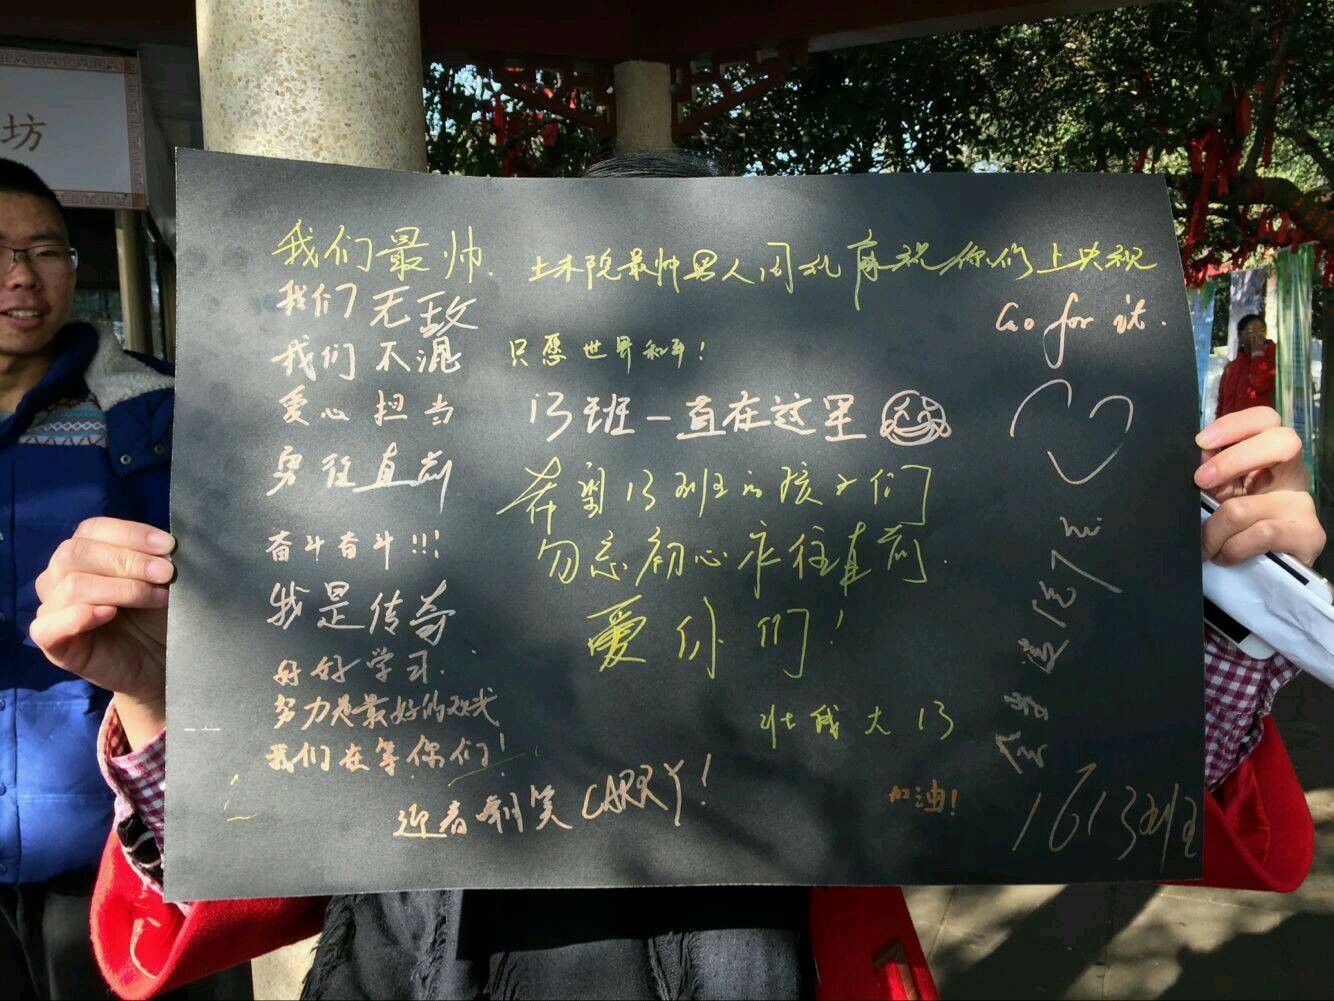 坊
我们最帅.
土木院最帅男人周礼 祝你们上央视
我们无敌
Go for it.
我们不混
只愿世界和平!
爱心担当
13班一直在这里
勇往直前
希望13班的孩子们
勿忘初心 往直前.
奋斗奋斗!!!
我是传奇
爱你们!
好好学习.
努力 最好的
壮我大13
我们在等你们!
迎着 笑CARRY!
加油!
1613班